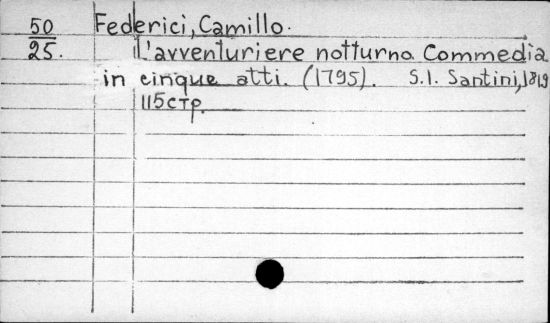 50 Federici, Camillo.
25. L'avventuriere notturno. Commedia
in cinque atti. (1795). S.l. Santini, 1819
115стр.